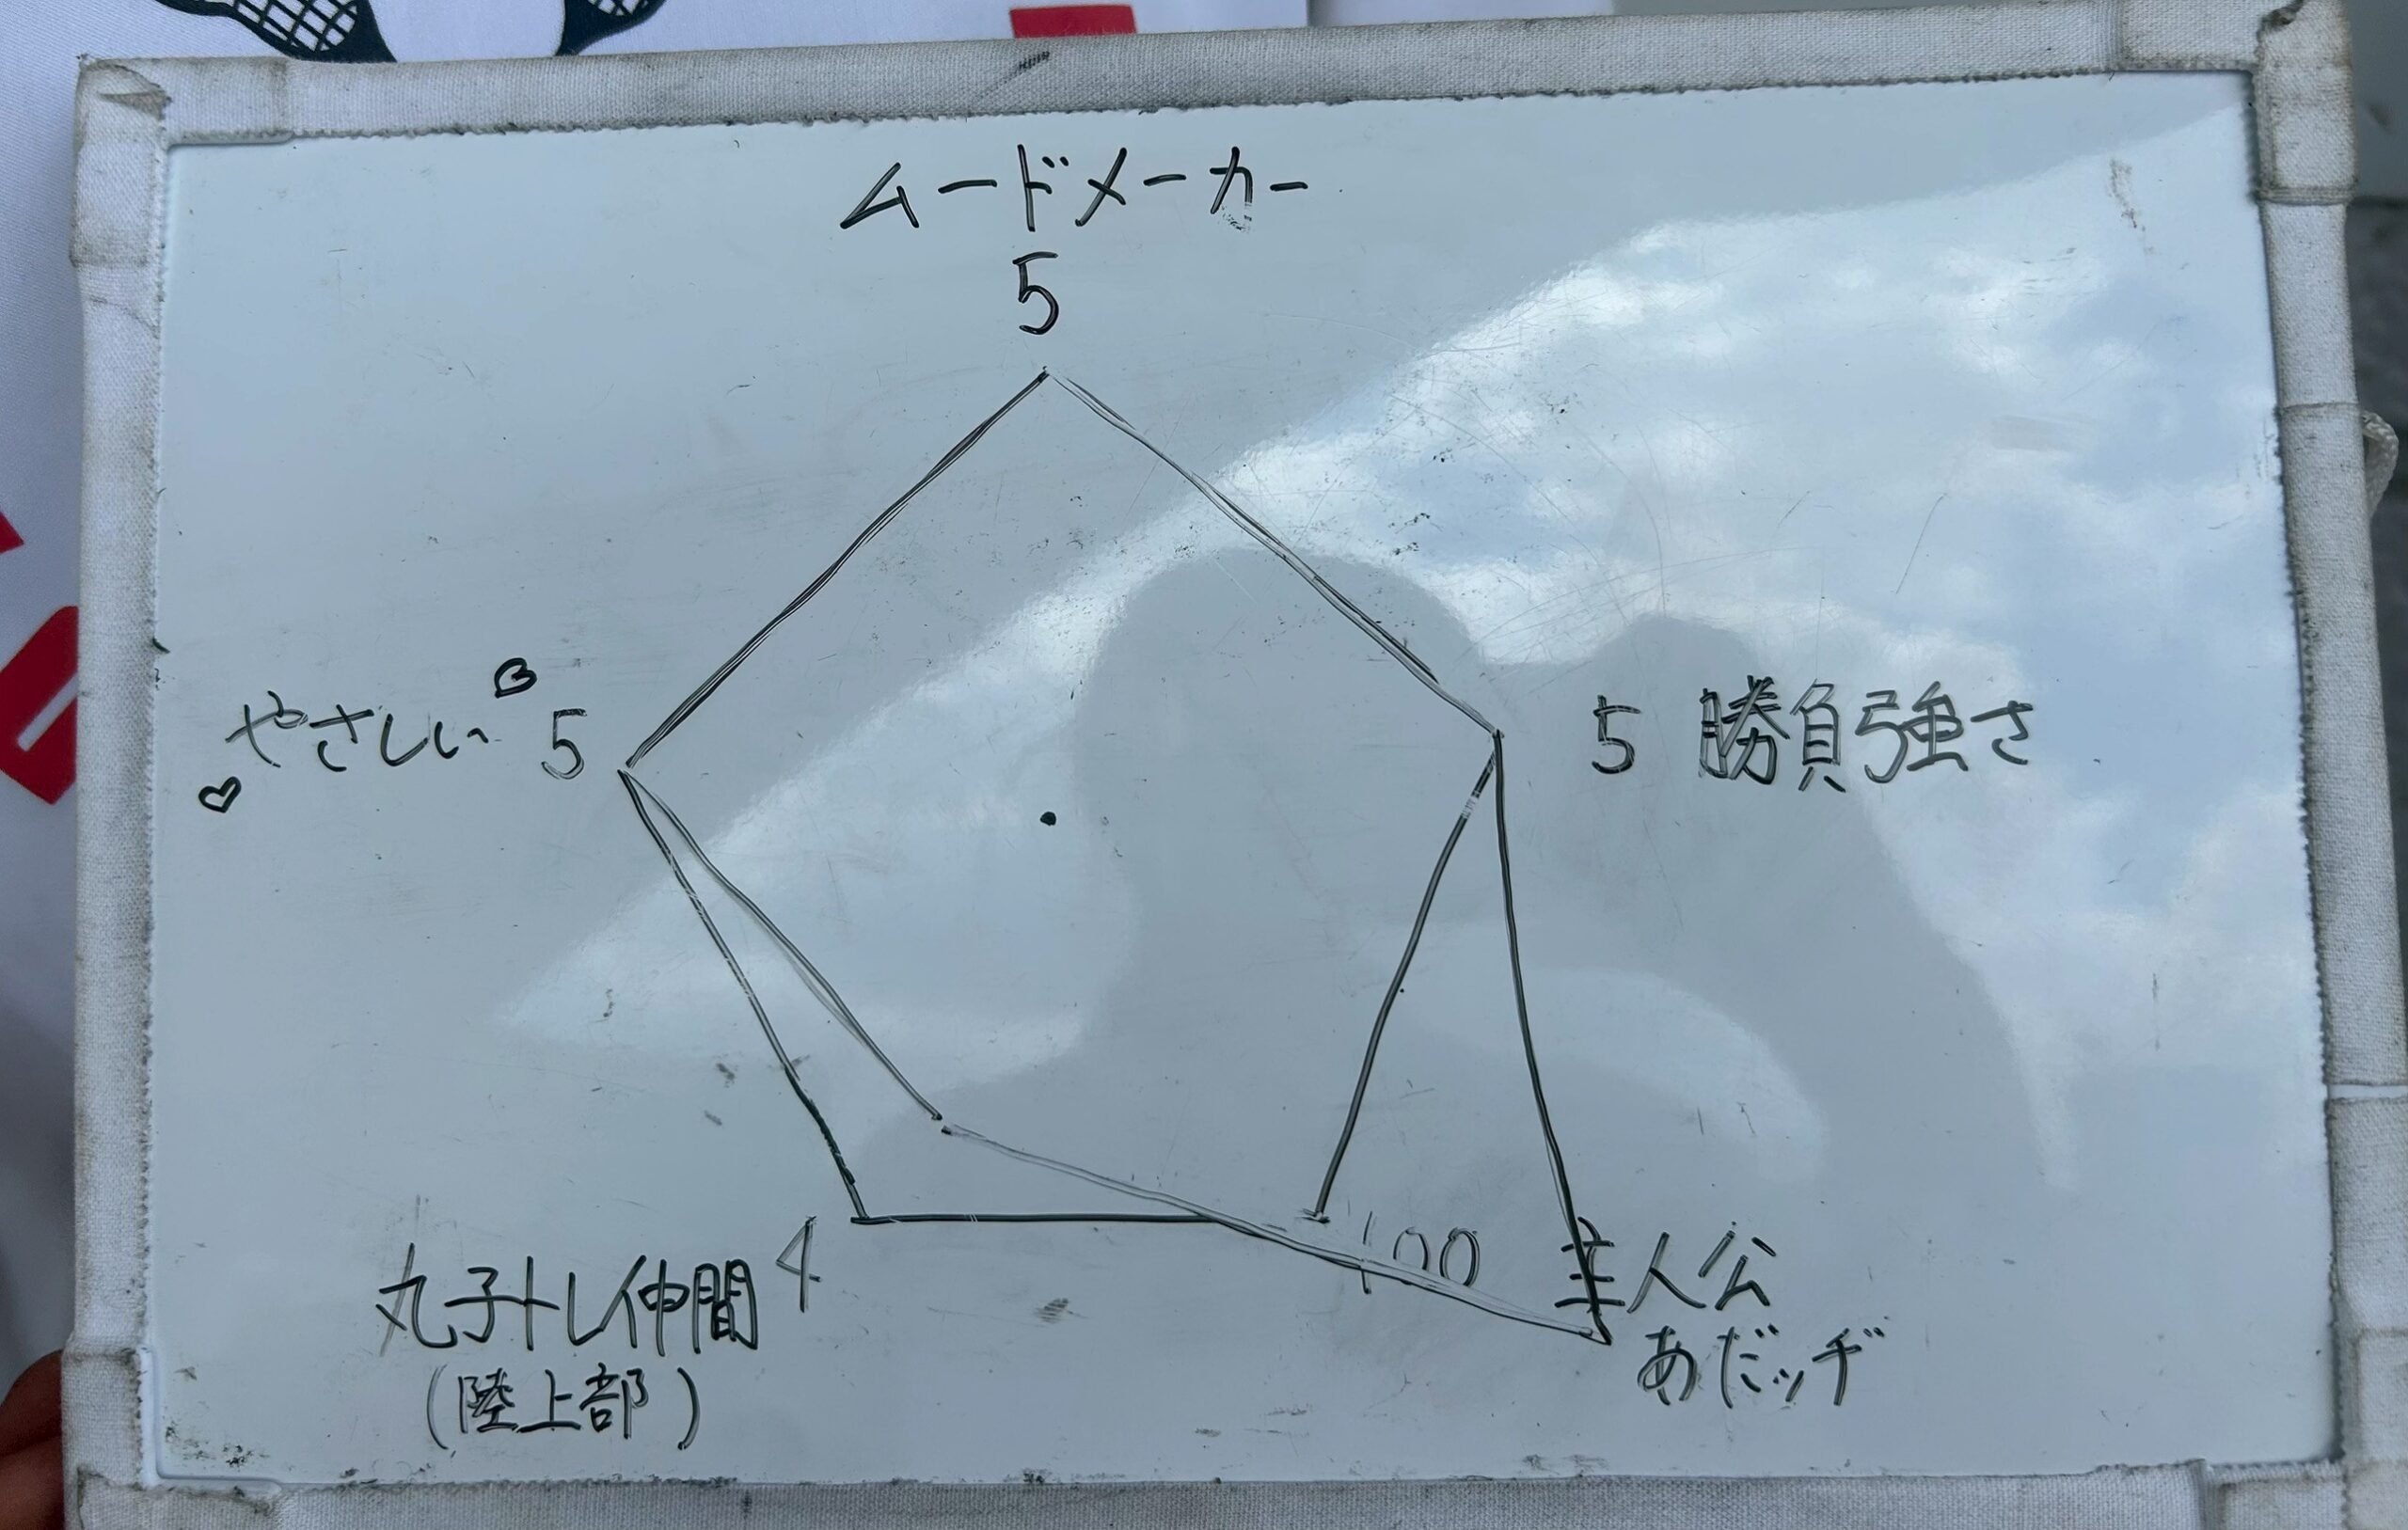 ムードメーカー
5
やさしい 5
5 勝負強さ
丸子トレ仲間 4
(陸上部)
100 主人公
あだッヂ